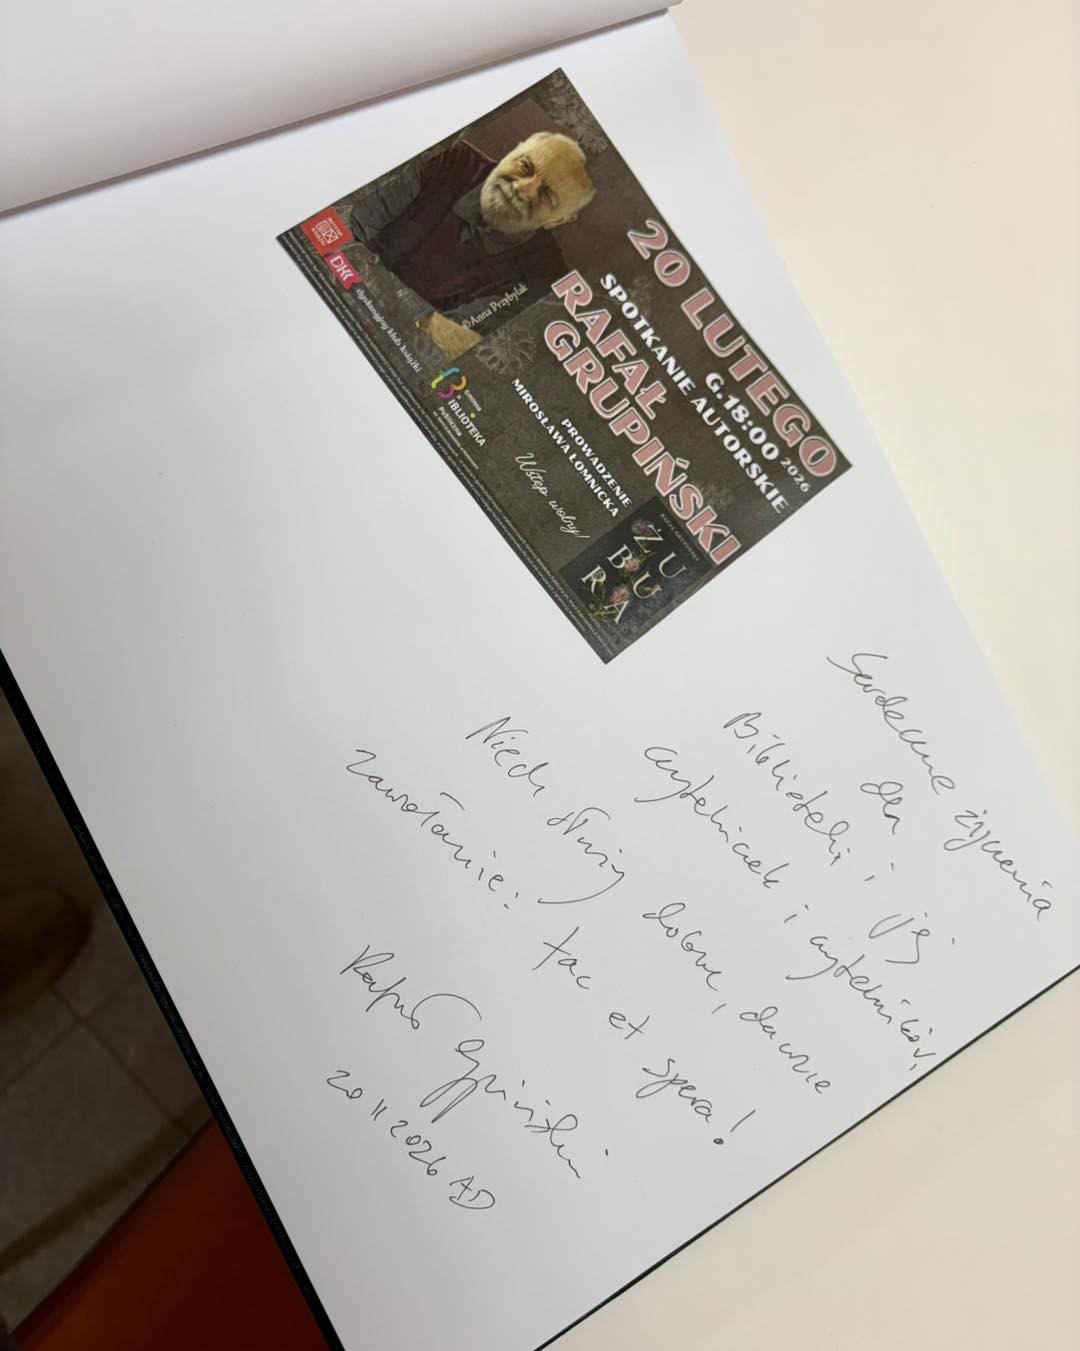 20 LUTEGO
G.18:00 2026
SPOTKANIE AUTORSKIE
RAFAŁ
GRUPIŃSKI
PROWADZENIE
MIROSŁAWA ŁOMNICKA
Wstęp wolny!
RAFAŁ GRUPIŃSKI
ŻU
BU
RA
©Anna Przybylak
INSTYTUT
KSIĄŻKI
DKK
dyskusyjny klub książki
Gminna
BIBLIOTEKA
Publiczna
Serdeczne życzenia
dla
Biblioteki i jej
czytelniczek i czytelników,
Niech służy dobre, dawne
zawołanie: fac et spera!
Rafał Grupiński
20 II 2026 AD